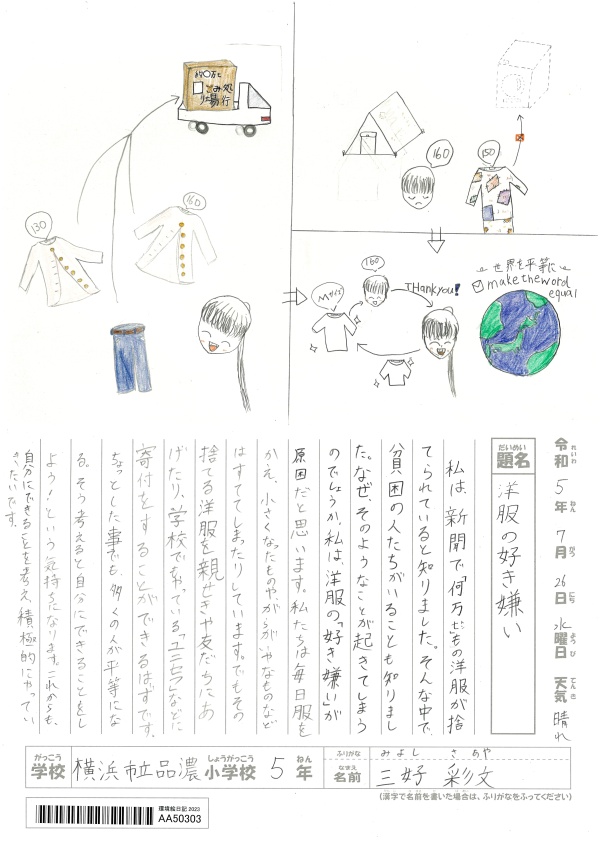 約〇万t
ごみ処
理場行
130
160
160
150
160
Mサイズ
Thank you!
世界を平等に
make the word
equal
令和 5年 7月 26日 水曜日 天気 晴れ
れいわ ねん がつ にち ようび てんき
だいめい
題名
洋服の好き嫌い
私は、新聞で「何万tもの洋服が捨
てられていると知りました。そんな中で、
貧困の人たちがいることも知りまし
た。なぜ、そのようなことが起きてしまう
のでしょうか。私は、洋服の「好き嫌い」が
原因だと思います。私たちは毎日服を
かえ、小さくなったものやがらがいやなものなど
はすててしまったりしています。でもその
捨てる洋服を親せきや友だちにあ
げたり、学校でもやっている「ユニセフ」などに
寄付をすることができるはずです。
ちょっとした事でも、多くの人が平等にな
る。そう考えると自分にできることをし
よう!という気持ちになります。これからも、
自分にできることを考え、積極的にやってい
きたいです。
がっこう しょうがっこう ねん
学校 横浜市立品濃小学校 5年
ふりがな みよし さあや
なまえ
名前 三好 彩文
(漢字で名前を書いた場合は、ふりがなをふってください)
環境絵日記 2023
AA50303